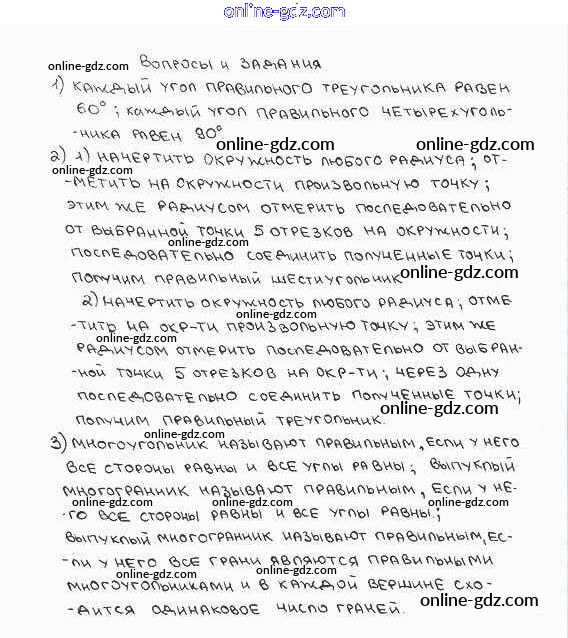 online-gdz.com
online-gdz.com Вопросы и задания
1) Каждый угол правильного треугольника равен
60°; каждый угол правильного четырехуголь-
-ника равен 90° online-gdz.com
2) 1) Начертить окружность любого радиуса; от-
online-gdz.com online-gdz.com
-метить на окружности произвольную точку;
этим же радиусом отмерить последовательно
от выбранной точки 5 отрезков на окружности;
online-gdz.com
последовательно соединить полученные точки;
получим правильный шестиугольник online-gdz.com
2) Начертить окружность любого радиуса; отме
-тить на окр-ти произвольную точку; этим же
online-gdz.com
радиусом отмерить последовательно от выбран-
-ной точки 5 отрезков на окр-ти; через одну
последовательно соединить полученные точки;
получим правильный треугольник. online-gdz.com
online-gdz.com
3) Многоугольник называют правильным, если у него
все стороны равны и все углы равны; выпуклый
многогранник называют правильным, если у не-
online-gdz.com online-gdz.com online-gdz.com
-го все стороны равны и все углы равны;
выпуклый многогранник называют правильным, ес-
-ли у него все грани являются правильными
online-gdz.com online-gdz.com
многоугольниками и в каждой вершине схо-
-дится одинаковое число граней. online-gdz.com
online-gdz.com